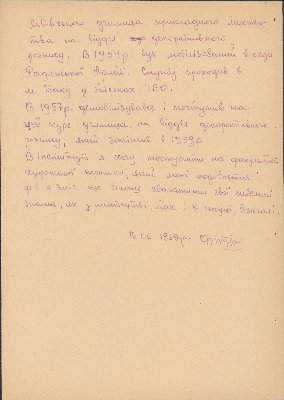 Львівського училища прикладного мистец-
тва на відділ декоративного
розпису. В 1954р. був мобілізований в ряди
Радянської Армії. Службу проходив в
м. Баку у військах ПВО.
В 1957р. демобілізувався і поступив на
курс училища, на відділ декоративного
розпису, який закінчив в 1959р.
В інститут я хочу поступити на факультет
художньої кераміки, який мені подобається і
де я зміг ще більше збагатити свої невеликі
знання, як у мистецтві, так і в науці взагалі.
1959р.